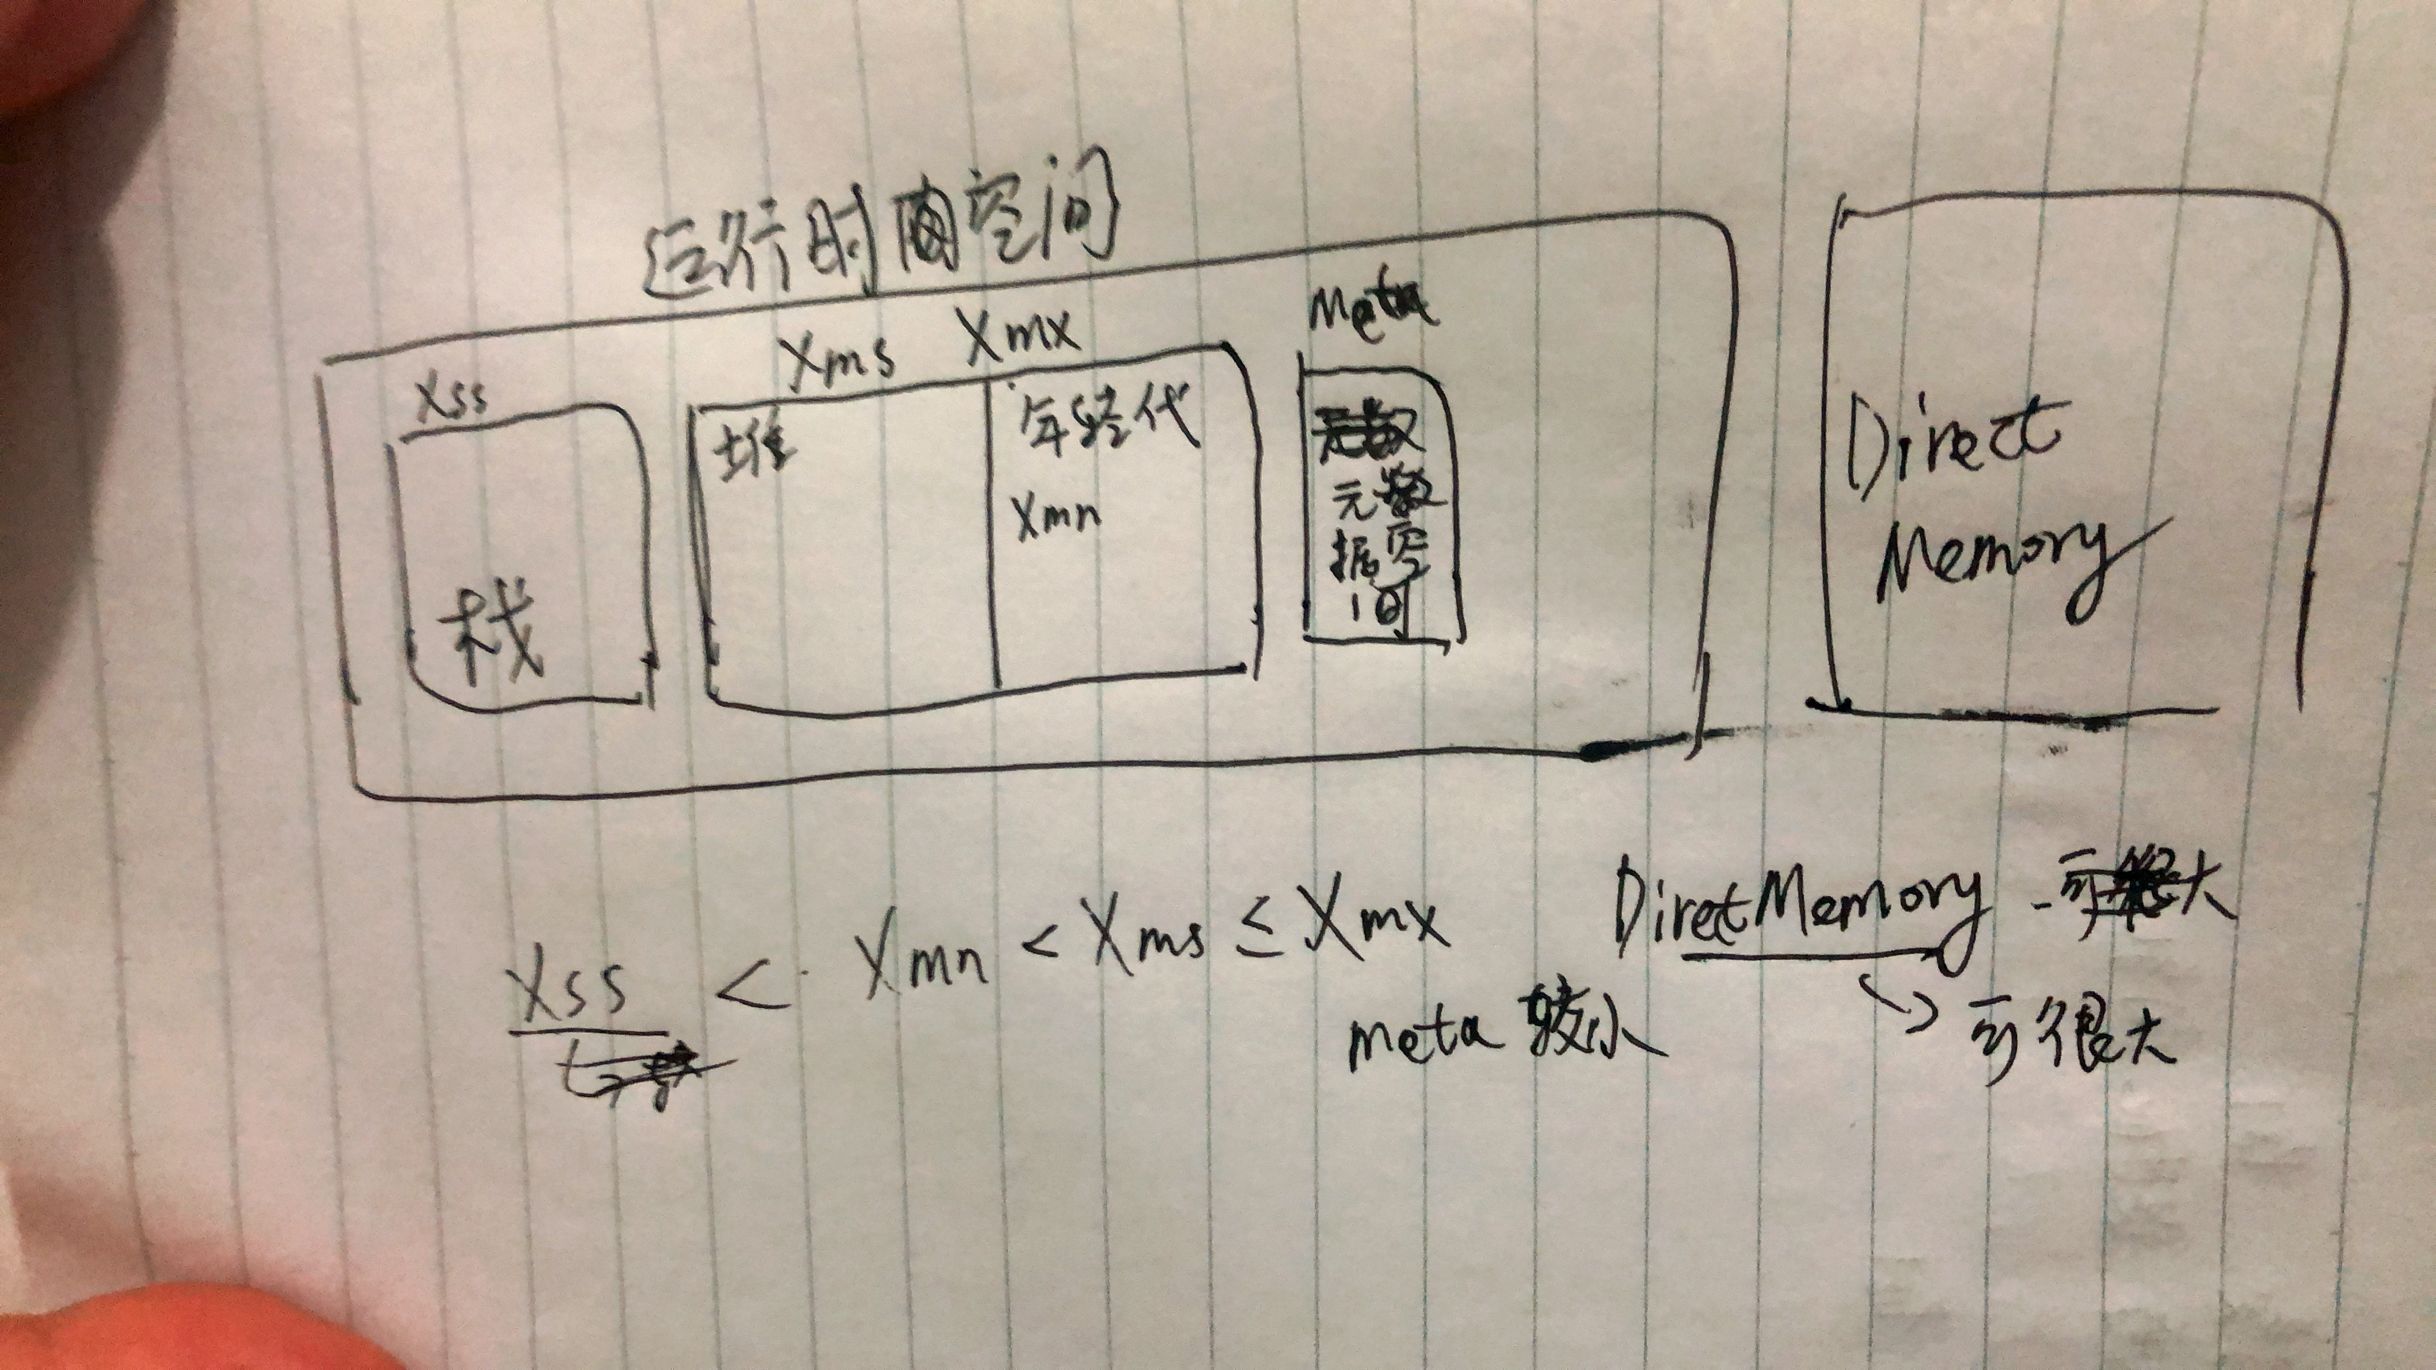 运行时空间
Xss
Xms Xmx
Meta
栈
堆
年轻代
Xmn
元数
据空
间
Direct
Memory
Xss < Xmn < Xms ≤ Xmx
meta 较小
DirectMemory
可很大